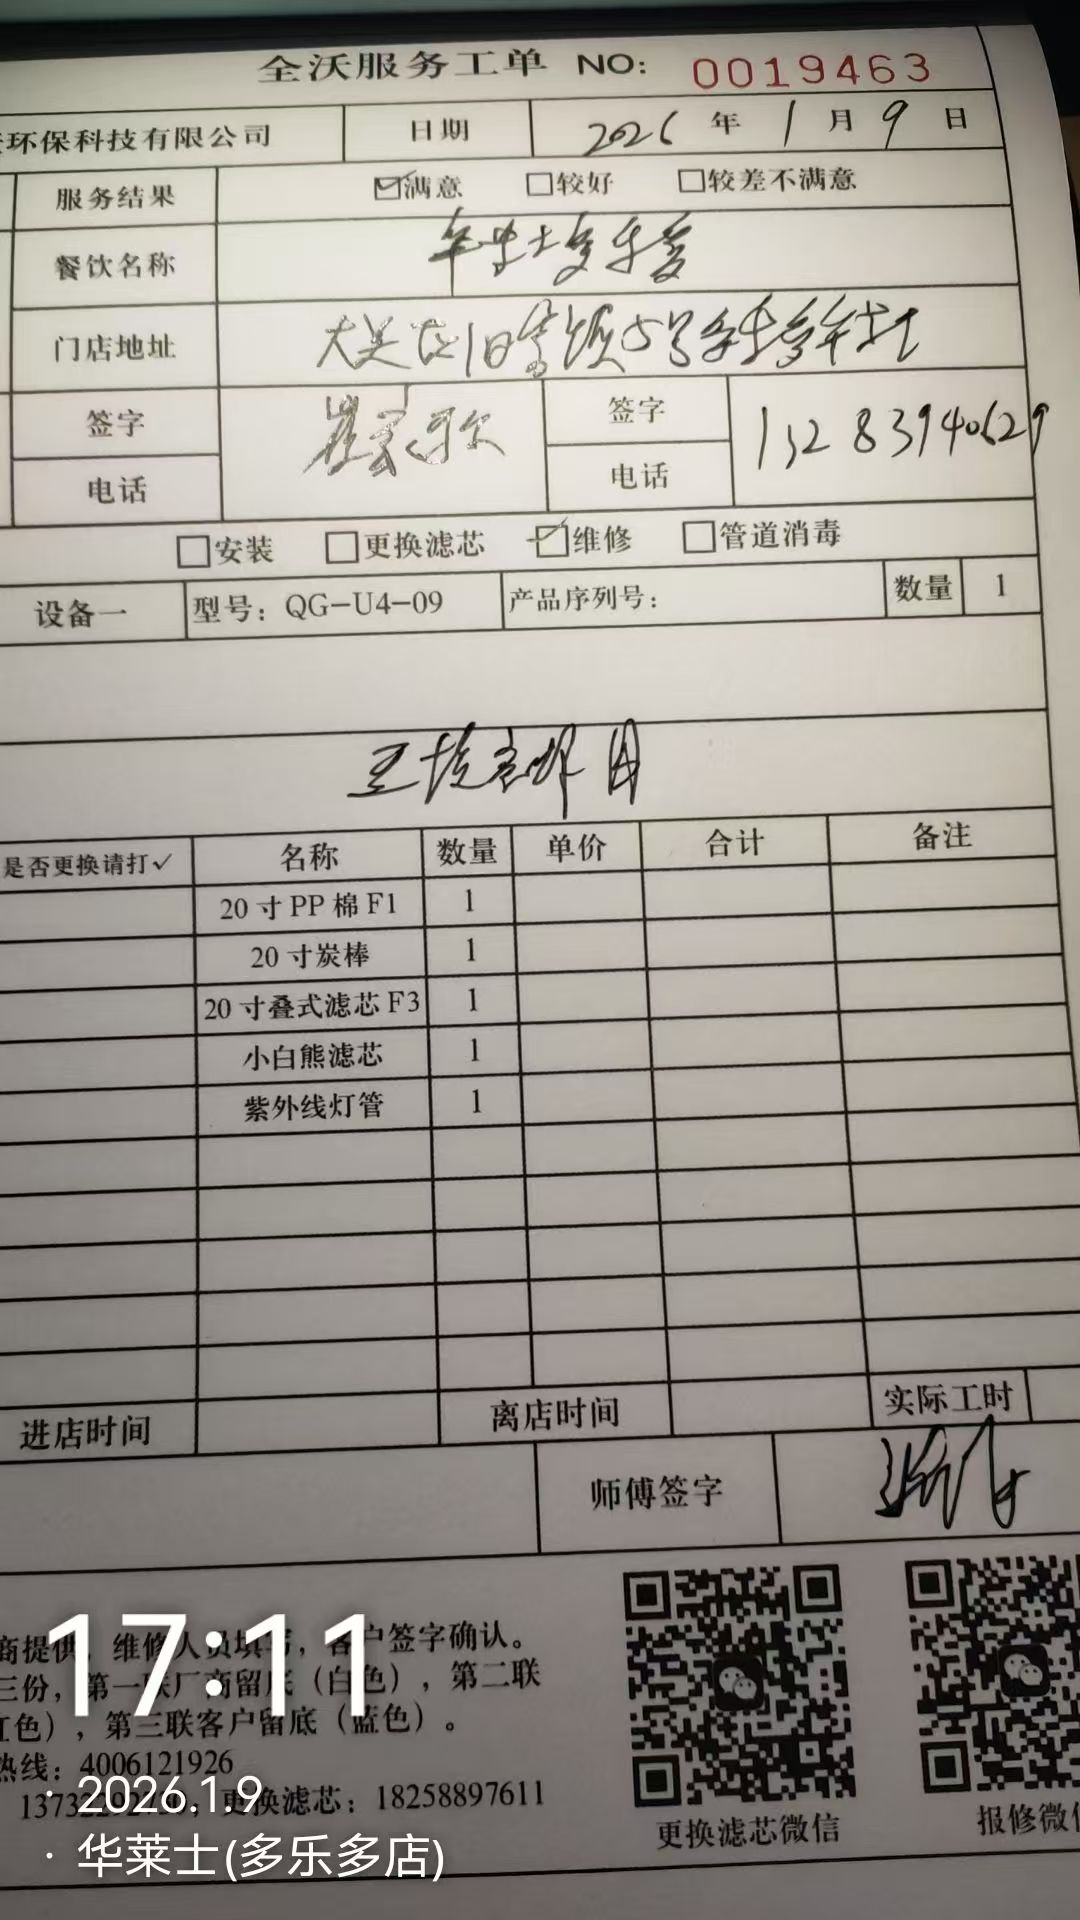 全沃服务工单 NO: 0019463
环保科技有限公司 日期 2026 年 1 月 9 日
服务结果 ☑满意 □较好 □较差不满意
餐饮名称 华莱士多乐多
门店地址
签字 签字
电话 电话 13283940629
□安装 □更换滤芯 ☑维修 □管道消毒
设备一 型号：QG-U4-09 产品序列号： 数量 1
是否更换请打✓ 名称 数量 单价 合计 备注
20寸PP棉F1 1
20寸炭棒 1
20寸叠式滤芯F3 1
小白熊滤芯 1
紫外线灯管 1
进店时间 离店时间 实际工时
师傅签字
商提供，维修人员填写，客户签字确认。
三份，第一联厂商留底（白色），第二联
红色），第三联客户留底（蓝色）。
热线：4006121926
更换滤芯：18258897611
更换滤芯微信
报修微信
17:11
· 2026.1.9
· 华莱士(多乐多店)